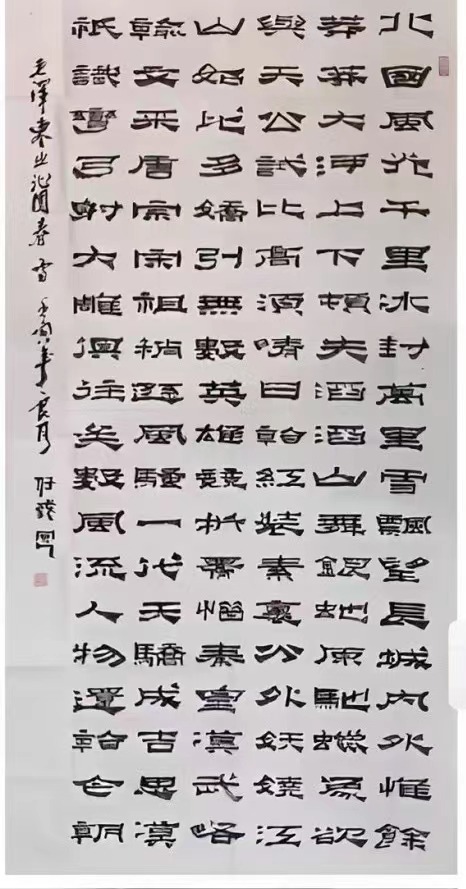 北國風光千里冰封萬里雪飄望長城內外惟餘
莽莽大河上下頓失滔滔山舞銀蛇原馳蠟象欲
與天公試比高須晴日看紅裝素裹分外妖嬈江
山如此多嬌引無數英雄競折腰惜秦皇漢武略
輸文采唐宗宋祖稍遜風騷一代天驕成吉思漢
祇識彎弓射大雕俱往矣數風流人物還看今朝
毛澤東之沁園春雪 壬寅年良月